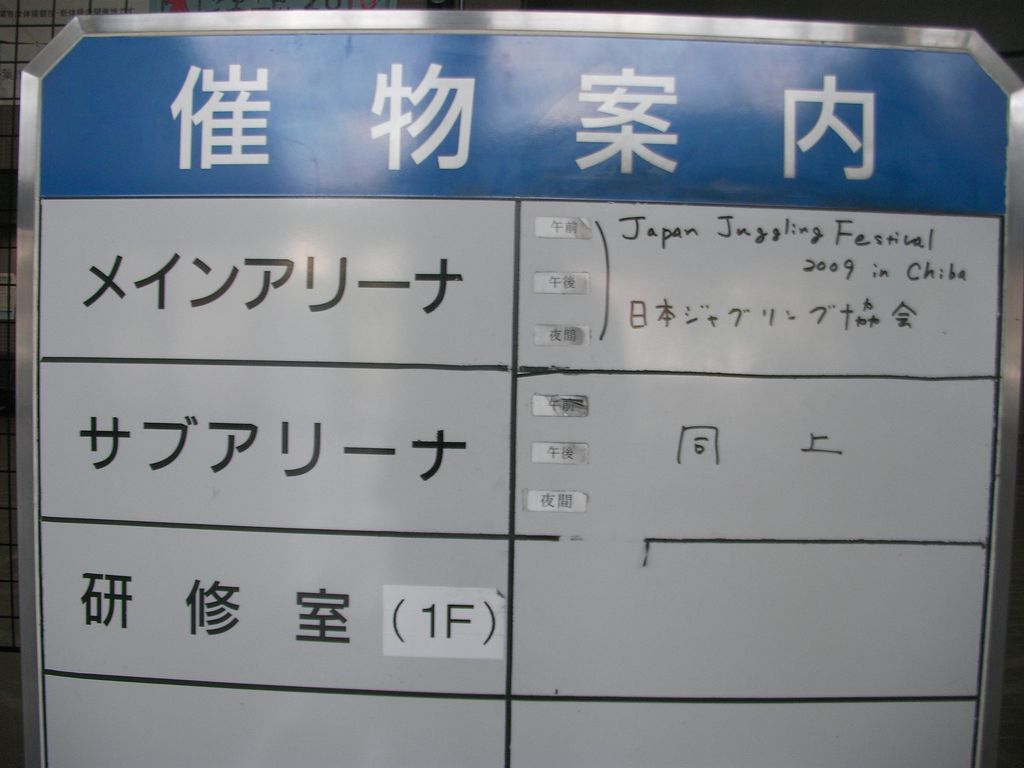 催物案内
メインアリーナ
午前
午後
夜間
Japan Juggling Festival
2009 in Chiba
日本ジャグリング協会
サブアリーナ
午前
午後
夜間
同上
研修室(1F)